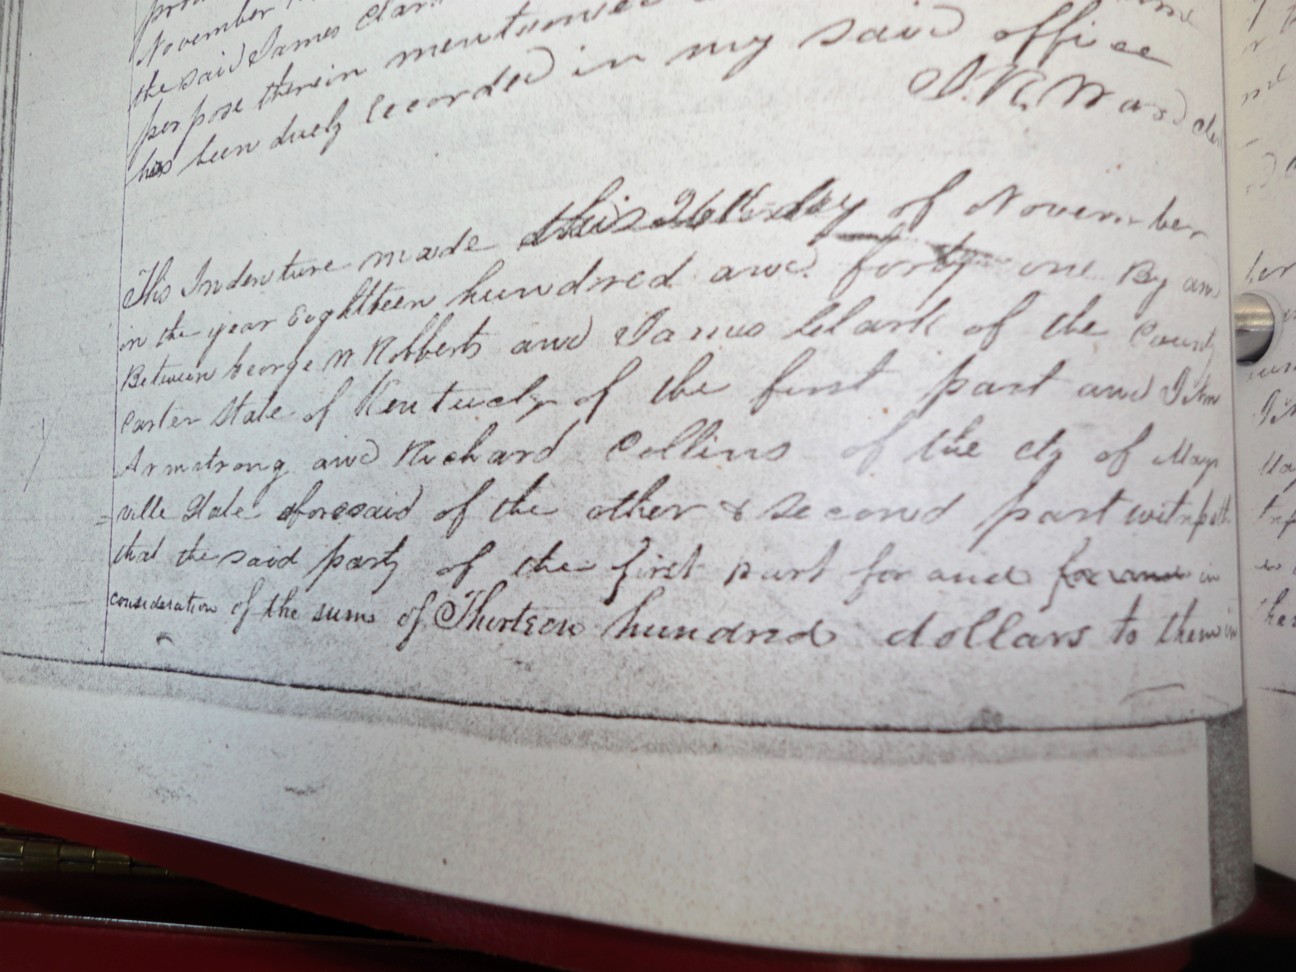 November
the said James Clark
perpose therein mentioned
has been duely recorded in my said office
J. R. Ward Clk
This Indenture made this 26th day of November
in the year Eighteen hundred and forty one By and
Between George W Robberts and James Clark of the County
Carter State of Kentucky of the first part and John
Armstrong and Richard Collins of the cty of Mays
=ville State aforesaid of the other & second part witnesseth
that the said party of the first part for and in
consideration of the sum of Thirteen hundred dollars to them in